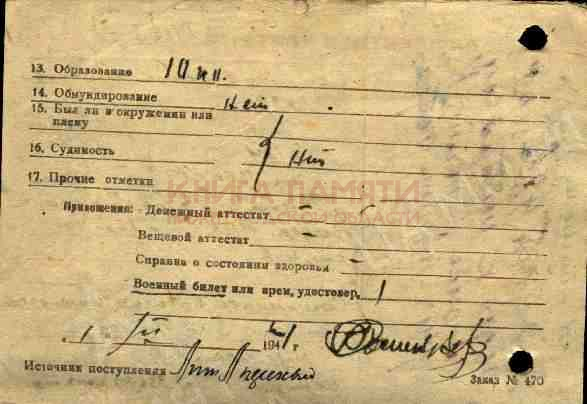 13. Образование 10 кл.
14. Обмундирование Нет
15. Был ли в окружении или
плену
16. Судимость Нет
17. Прочие отметки
КНИГА ПАМЯТИ
ОБЛАСТИ
Приложения: Денежный аттестат –
Вещевой аттестат –
Справка о состоянии здоровья –
Военный билет или врем. удостовер. 1
1 194 г
Источник поступления
Заказ № 470